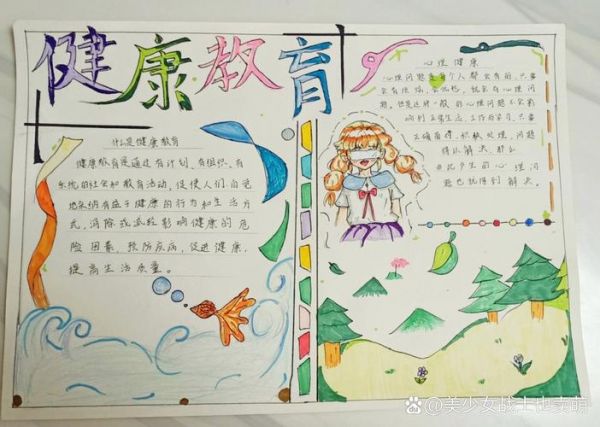 健康教育
什么是健康教育
健康教育是通过有计划、有组织、有
系统的社会和教育活动，促使人们自觉
地采纳有益于健康的行为和生活方
式，消除或减轻影响健康的危
险因素、预防疾病，促进健康，
提高生活质量。
心理健康
心理问题每个人都会有的，只要
会有烦恼，会
问题，但是这样一般的心理问题不会影
响到正常生活、工作的学习，只要
正确看待，积极处理，问题
得以解决，那么
心理问
题也就得到解决。
@美少女战士也支萌